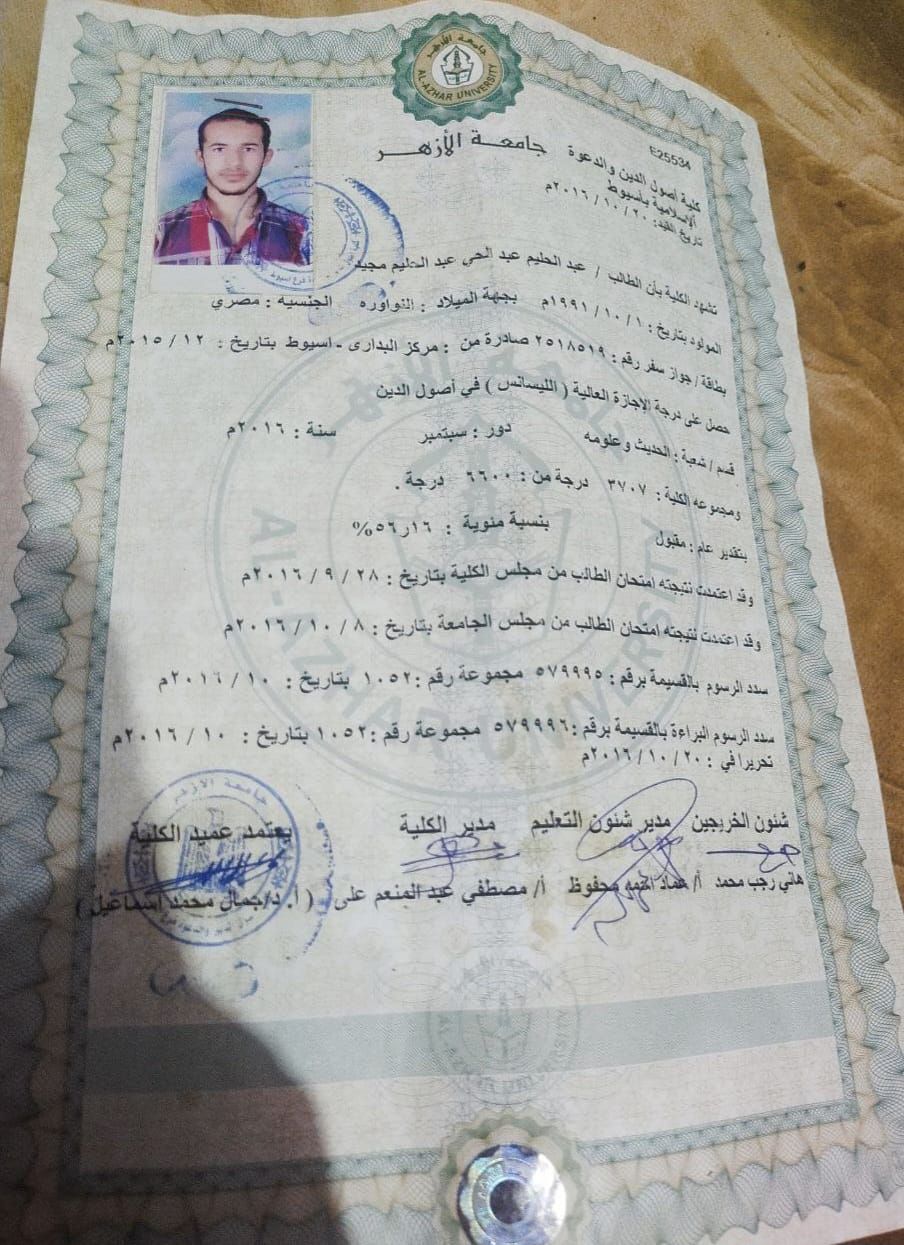 جامعة الأزهر
AL-AZHAR UNIVERSITY
E25534
جامعة الأزهر
كلية أصول الدين والدعوة
الإسلامية بأسيوط
تاريخ القيد: ٢٠ / ١٠ / ٢٠١٦م
تشهد الكلية بأن الطالب / عبد الحليم عبد الحى عبد الحليم مجيد
المولود بتاريخ : ١ / ١٠ / ١٩٩١م بجهة الميلاد : النواوره الجنسيه : مصري
بطاقة / جواز سفر رقم : ٢٥١٨٥١٩ صادرة من : مركز البدارى - اسيوط بتاريخ : ١٢ / ٢٠١٥م
حصل على درجة الاجازة العالية ( الليسانس ) في أصول الدين
قسم / شعبة : الحديث وعلومه دور : سبتمبر سنة : ٢٠١٦م
ومجموعه الكلية : ٣٧٠٧ درجة من : ٦٦٠٠ درجة .
بتقدير عام : مقبول بنسبة مئوية : ١٦ر٥٦%
وقد اعتمدت نتيجته امتحان الطالب من مجلس الكلية بتاريخ : ٢٨ / ٩ / ٢٠١٦م
وقد اعتمدت نتيجته امتحان الطالب من مجلس الجامعة بتاريخ : ٨ / ١٠ / ٢٠١٦م
سدد الرسوم بالقسيمة برقم : ٥٧٩٩٩٥ مجموعة رقم : ١٠٥٢ بتاريخ : ١٠ / ٢٠١٦م
سدد الرسوم البراءة بالقسيمة برقم : ٥٧٩٩٩٦ مجموعة رقم : ١٠٥٢ بتاريخ : ١٠ / ٢٠١٦م
تحريرا في : ٢٠ / ١٠ / ٢٠١٦م
شئون الخريجين مدير شئون التعليم مدير الكلية يعتمد عميد الكلية
هاني رجب محمد أ/ عماد محفوظ أ/ مصطفي عبد المنعم على ( أ. د/جمال محمد اسماعيل )
جامعة الأزهر
AL-AZHAR UNIVERSITY